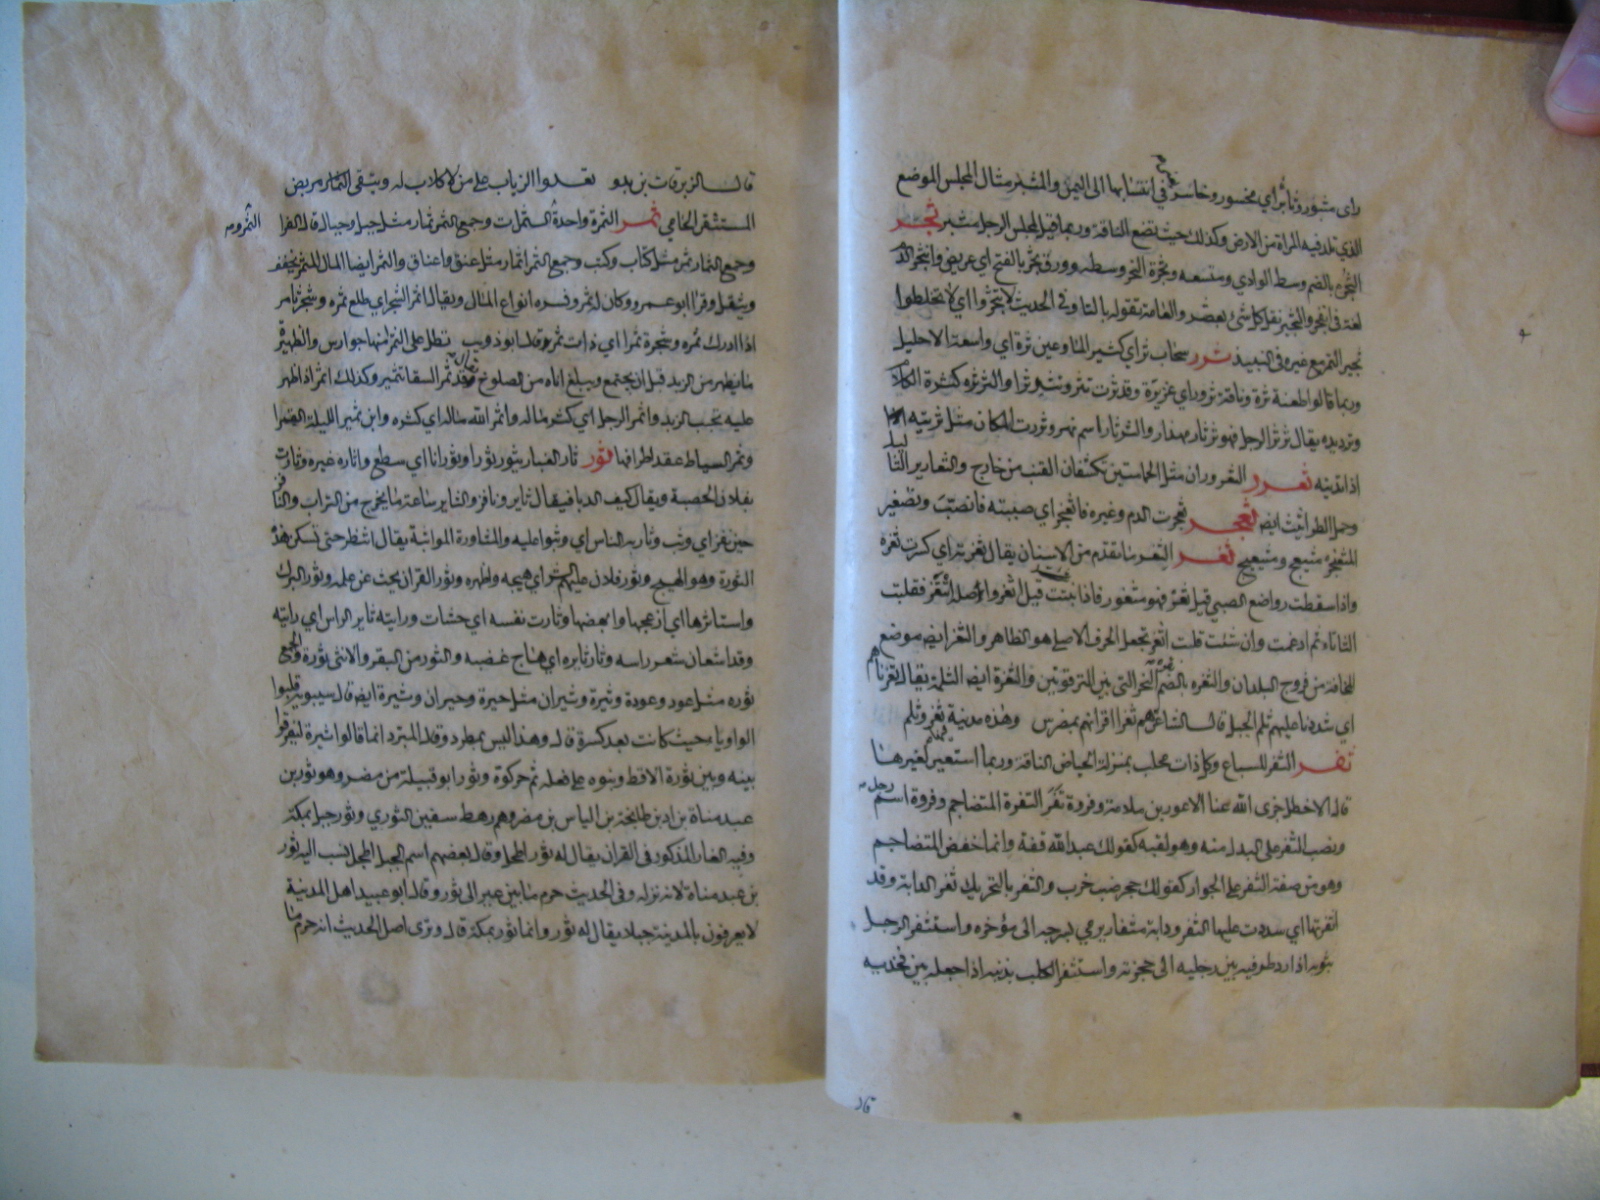 راى مثبور وثابر أي مخسور وخاسر في انتسابها الى اليمن والمثبر مثال المجلس الموضع
الذي تلد فيه المراة من الارض وكذلك حيث تضع الناقة وربما قيل لمجلس الرجل مثبر ثجر
الثجرة بالضم وسط الوادي ومتسعه وثجرة النحر وسطه وورق ثجر بالفتح اي عريض وانثجر الدم
لغة في انفجر والثجير ثفل كل شئ يعصر والعامة تقوله بالتا وفي الحديث لا تثجروا اي لا تخلطوا
ثجير التمر مع غيره في النبيذ ثرر سحاب ثر اي كثير الما وعين ثرة اي واسعة الاحليل
وربما قالوا طعنة ثرة وناقة ثرور اي غزيرة وقد ثرت تثر وتثر ثرا والثرثره كثرة الكلام
وترديده يقال ثرثر الرجل فهو ثرثار مهذار والثرثار اسم نهر وثررت المكان مثل ثريته
اذا نديته ثعرر الثعروران مثل الحلمتين تكتنفان القنب من خارج والثعارير الثاليل
وحمل الطراثيث ايض ثعجر ثعجرت الدم وغيره فاثعنجر اي صببته فانصبّ وتصغير
المثعنجر مثيعج ومثيعيج ثغر الثغر ما تقدم من الاسنان يقال ثغرته اي كسرت ثغره
واذا سقطت رواضع الصبي قيل ثغر فهو مثغور فاذا نبتت قيل اثغر واصله اثتغر فقلبت
التا ثاء ثم ادغمت وان شئت قلت اتغر تجعل الحرف الاصلي هو الظاهر والثغر ايض موضع
المخافة من فروج البلدان والثغره بالضم نقرة النحر التي بين الترقوتين والثغرة ايض الثلمة يقال ثغرناهم
اي سددنا عليهم ثلم الجبل قال الشاعر وهم ثغروا اقرانهم بمضرس وهذه مدينة فيها ثغر وثلم
ثفر الثفر للسباع وكل ذات مخلب بمنزلة الحياض الناقة وربما استعير لغيرها
قال الاخطل جزى الله عنا الاعورين ملامة وفروة ثفر الثفرة المتضاجم وفروة اسم رجل
ونصب الثفر على البدل منه وهو لقبه كقولك عبد الله قفة وانما خفض المتضاجم
وهو من صفة الثفر على الجوار كقولك جحر ضب خرب والثفر بالتحريك ثفر الدابة وقد
اثفرتها اي شددت عليها الثفر ودابة مثفار يرمي بسرجه الى مؤخره واستثفر الرجل
بثوبه اذا رد طرفيه بين رجليه الى حجزته واستثفر الكلب بذنبه اذا جعله بين فخذيه
قال الزبرقان بن بدر تعدوا الزياب على من لا كلاب له وتتقى مربض
المستثفر الحامي ثمر الثمرة واحدة الثمرات وجمع الثمر ثمار مثل جبل وجبال قال الفرا
وجمع الثمار ثمر مثل كتاب وكتب وجمع الثمر اثمار مثل عنق واعناق والثمر ايضا المال المثمر يخفف
ويثقل وقرا ابو عمرو وكان له ثمر وفسره انواع المال ويقال اثمر الشجر اي طلع ثمره وشجر ثامر
اذا ادرك ثمره وشجرة ثمرا اي ذات ثمر وقال ابو ذويب تظل على الثمرا منها جوارس والثميرة
ما يظهر من الزبد قبل ان يجتمع ويبلغ اناه من الصلوح وقد ثمر السقا تثميرا وكذلك اثمر اذا ظهر
عليه تحبب الزبد واثمر الرجل اي كثر ماله واثمر الله ماله اي كثره وابن ثمير الليلة القمرا
وثمر السياط عقد اطرافها ثور ثار الغبار يثور ثورا وثورانا اي سطع واثاره غيره وثارت
بفلان الحصبة ويقال كيف الدبا فيقال ثاير ونافر والثاير ساعة ما يخرج من التراب والنافر
حين نفر اي وثب وثار به الناس اي وثبوا عليه والمثاورة المواثبة يقال انتظر حتى تسكن هذه
الثورة وهو الهيج وثور فلان عليهم شرا اي هيجه واظهره وثور القران بحث عن علمه وثور البرك
واستثارها اي ازعجها وانهضها وثارت نفسه اي جشات ورايته ثاير الراس اي رايته
وقد اشعان شعر راسه وثار ثايره اي هاج غضبه والثور من البقر والانثى ثورة والجمع
ثوره مثل عود وعودة وثيرة وثيران مثل جيرة وجيران وثيرة ايض قال سيبويه قلبوا
الواو ياء حيث كانت بعد كسرة قال وهذا ليس بمطرد وقال المبرد انما قالوا ثيرة ليفرقوا
بينه وبين ثورة الاقط وبنوه على فعله ثم حركوه وثور ابو قبيلة من مضر وهو ثور بن
عبد مناة بن اد بن طابخة بن الياس بن مضر وهم رهط سفين الثوري وثور جبل بمكة
وفيه الغار المذكور في القران يقال له ثور اطحل وقال بعضهم اسم الجبل اطحل نسب اليه ثور
بن عبد مناة لانه نزله وفي الحديث حرم ما بين عير الى ثور وقال ابو عبيد اهل المدينة
لا يعرفون بالمدينة جبلا يقال له ثور وانما ثور بمكة قال ونرى اصل الحديث انه حرم ما